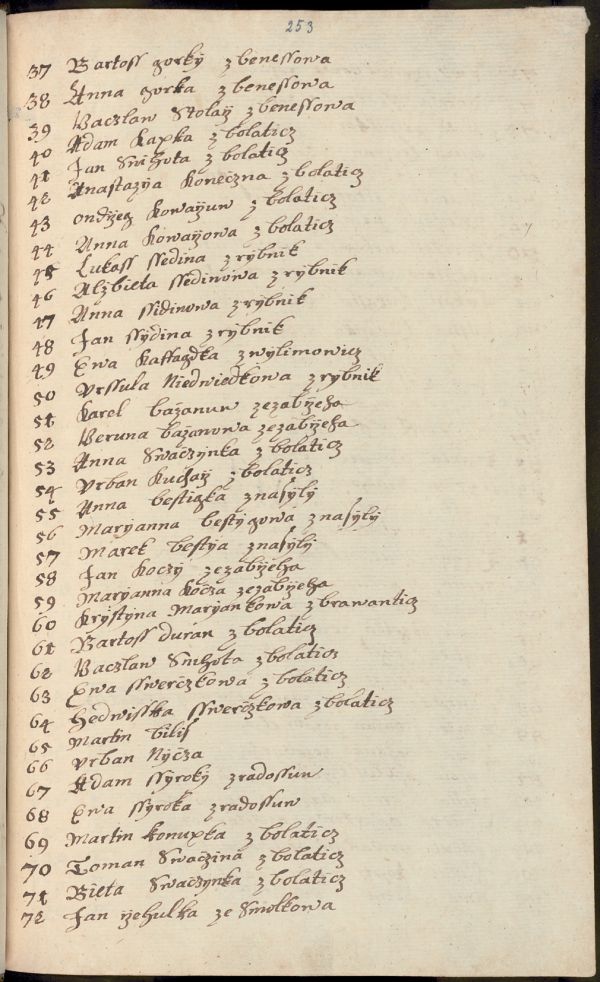 253
37 Bartoss gorky z benessowa
38 Anna gorka z benessowa
39 Vaczlaw Stolaÿ z benessowa
40 Adam Kapka z bolaticz
41 Jan Snihota z bolaticz
42 Anastazÿa Koneczna z bolaticz
43 ondÿeg Kowaÿuw z bolaticz
44 Anna Kowaÿowa z bolaticz
45 Lukass ssedina z rÿbnik
46 Alzbieta ssedinowa z rÿbnik
47 Anna ssidinowa z rÿbnik
48 Jan ssÿdina z rÿbnik
49 Ewa z wÿlimowicz
50 Vrssula Niedwiedkowa z rÿbnik
51 Karel bazanuw ze zabÿeha
52 Veruna bazanowa ze zabÿeha
53 Anna Swaczÿnka z bolaticz
54 Vrban Kuchaÿ z bolaticz
55 Anna bestigka z nasÿlÿ
56 Marÿanna bestÿgowa z nasÿlÿ
57 Marek bestÿa z nasÿlÿ
58 Jan Koczÿ ze zabÿeha
59 Marÿanna Kocza ze zabÿeha
60 Krÿstÿna Marÿankowa z brawanticz
61 Bartoss duran z bolaticz
62 Vaczlaw Snihota z bolaticz
63 Ewa sswerczkowa z bolaticz
64 hedwisska sswerczkowa z bolaticz
65 Martin bilis
66 Vrban Nÿcza
67 Adam ssÿrokÿ z radossuw
68 Ewa ssÿroka z radossuw
69 Martin konupka z bolaticz
70 Toman Swaczina z bolaticz
71 Bieta Swaczÿnka z bolaticz
72 Jan ÿehulka ze Smolkowa